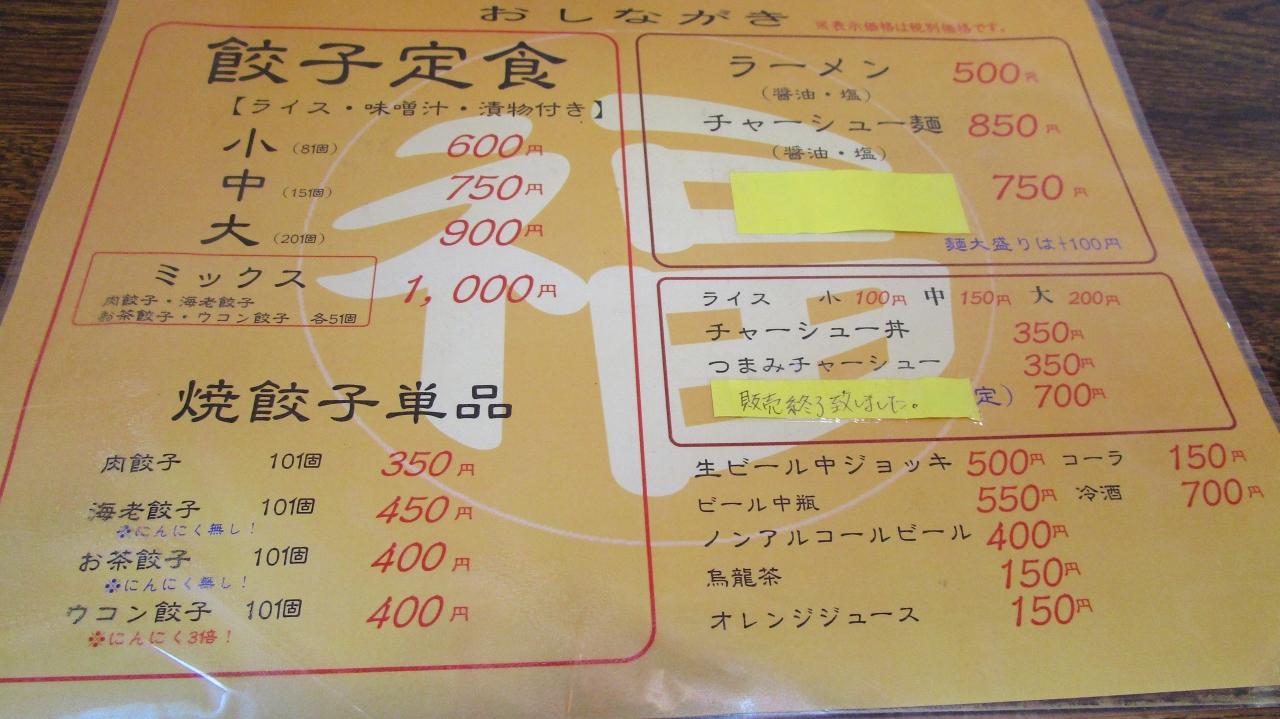 おしながき
※表示価格は税別価格です。
餃子定食
【ライス・味噌汁・漬物付き】
小（8個） 600円
中（15個） 750円
大（20個） 900円
ミックス 1,000円
肉餃子・海老餃子
お茶餃子・ウコン餃子 各5個
焼餃子単品
肉餃子 10個 350円
海老餃子 10個 450円
※にんにく無し！
お茶餃子 10個 400円
※にんにく無し！
ウコン餃子 10個 400円
※にんにく3倍！
ラーメン 500円
（醤油・塩）
チャーシュー麺 850円
（醤油・塩）
750円
麺大盛りは+100円
ライス 小 100円 中 150円 大 200円
チャーシュー丼 350円
つまみチャーシュー 350円
販売終了致しました。 定） 700円
生ビール中ジョッキ 500円 コーラ 150円
ビール中瓶 550円 冷酒 700円
ノンアルコールビール 400円
烏龍茶 150円
オレンジジュース 150円